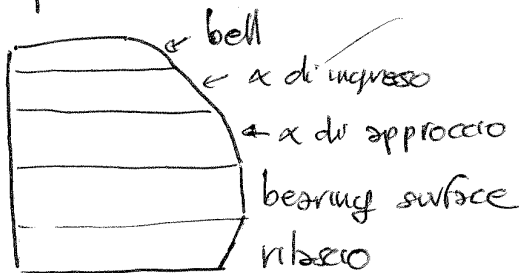 bell
α di ingresso
α di approccio
bearing surface
rilascio